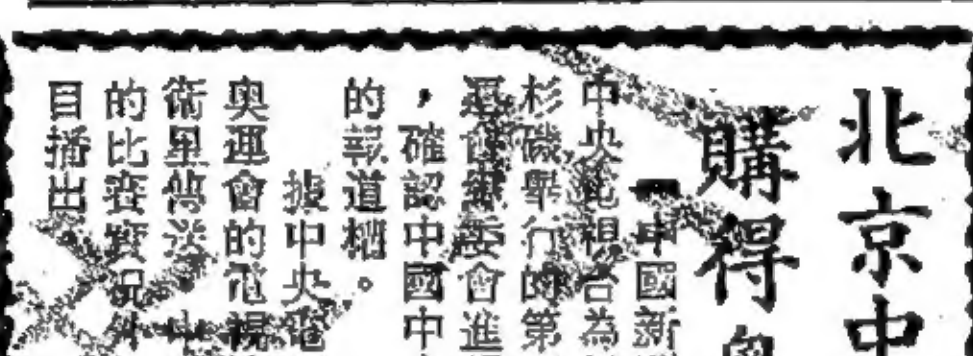 北京中
購得奧
【中國新
中央電視台為
杉磯舉行的第
運會組委會進
，確認中國中
的報道權。
據中央電
奧運會的電視
衛星傳送
的比賽實況外
目播出